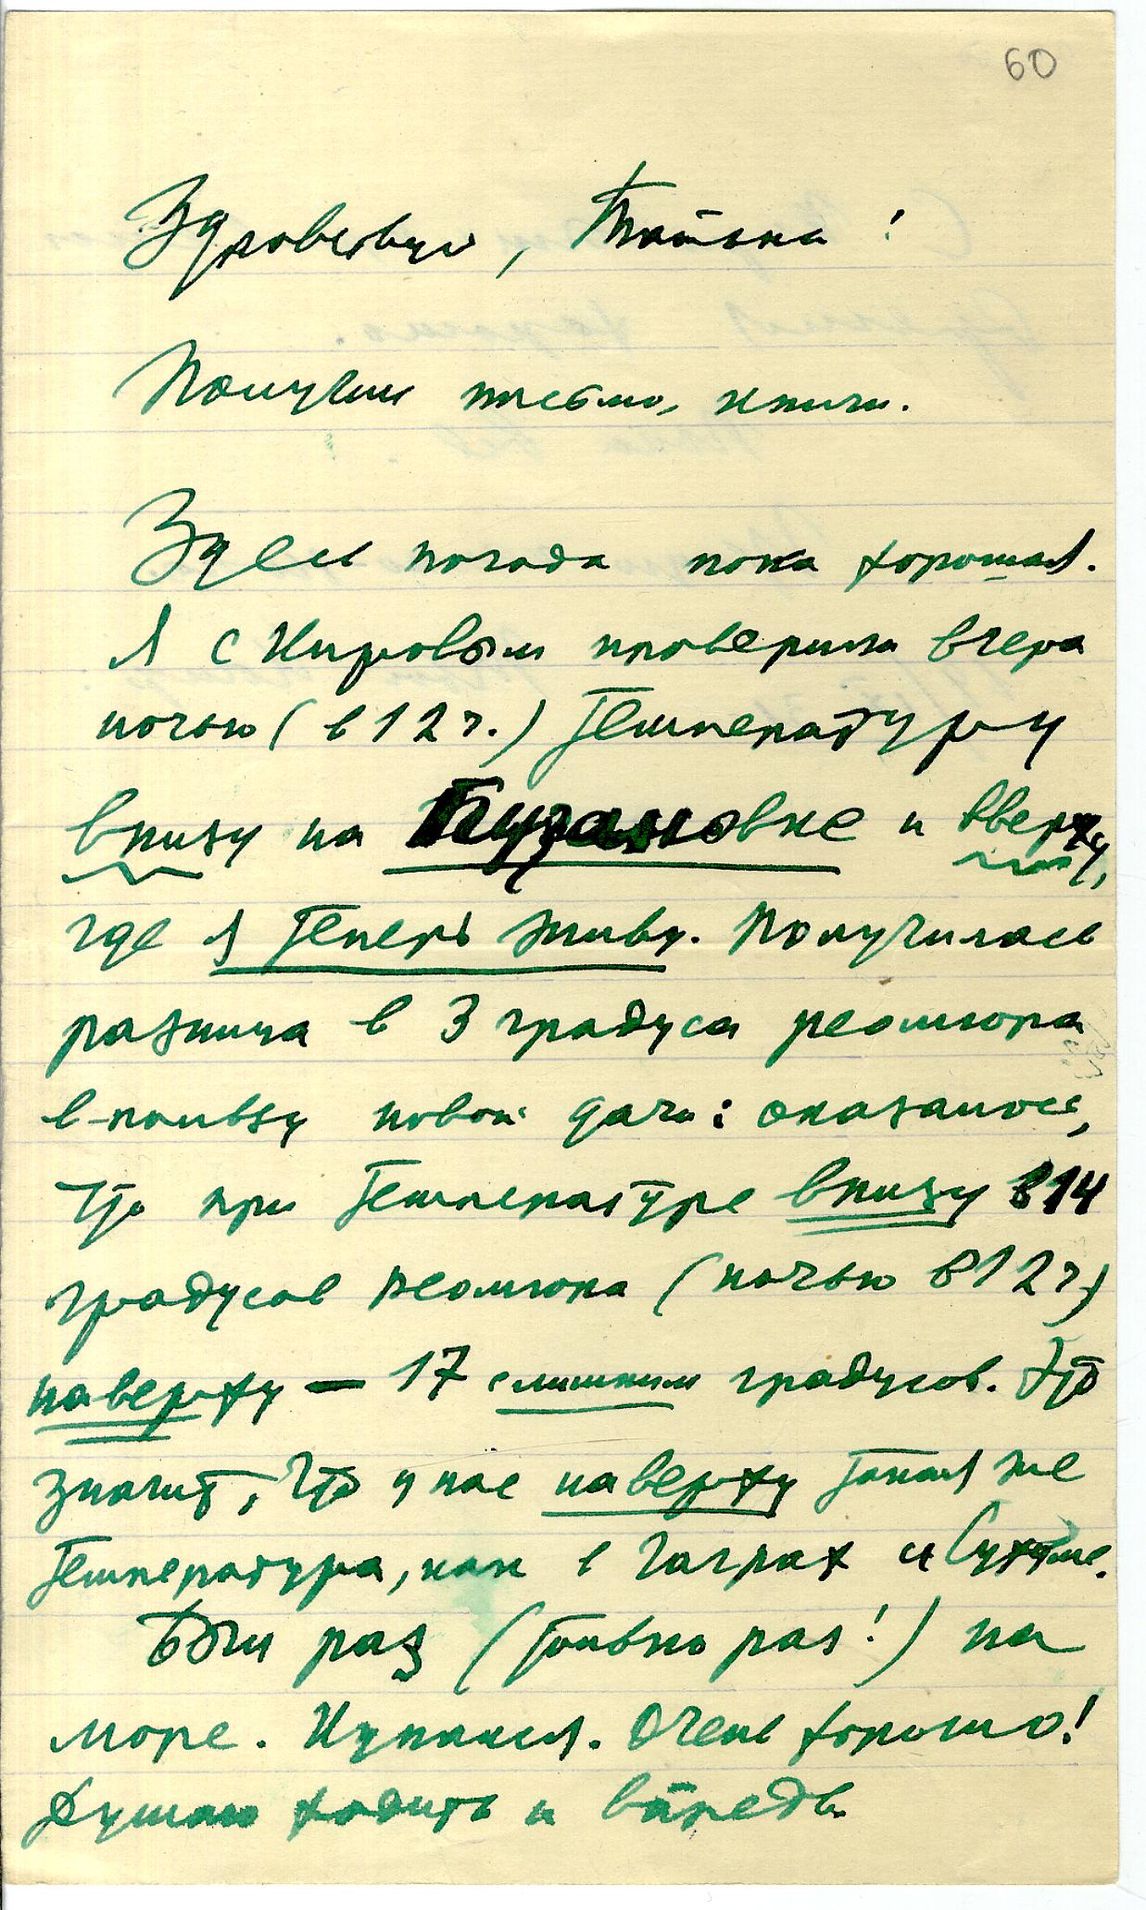 60
Здравствуй, Татька!
Получил письмо, кепчи.
Здесь погода пока хорошая.
Я с Кировым проверили вчера
ночью (в 12 ч.) температуру
внизу на Пузановке и вверху,
где я теперь живу. Получилась
разница в 3 градуса реомюра
в пользу новой дачи: оказалось,
что при температуре внизу в 14
градусов реомюра (ночью в 12 ч.)
наверху — 17 слишним градусов. Это
значит, что у нас наверху такая же
температура, как в Гаграх и Сухуме.
Был раз (только раз!) на
море. Купался. Очень хорошо!
Думаю ходить и впредь.